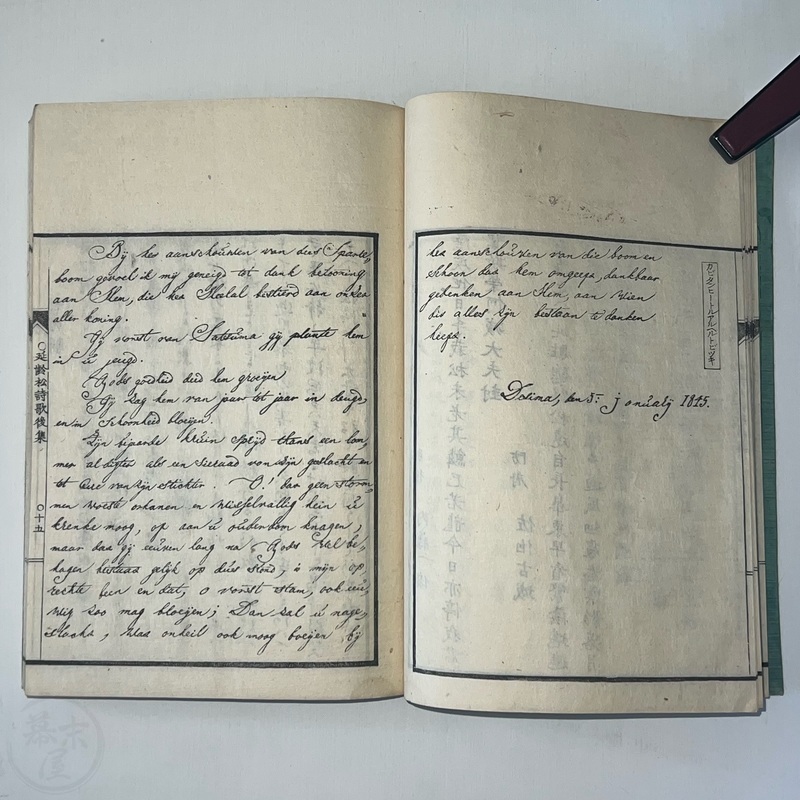 Bij het aanschouwen van dees Sparre
boom gevoel ik mij geneigd tot dank betooning
aan Hem, die het Heelal bestierd aan onzen
aller koning.
Gij vorst van Satsuma gij plante hem
in u jeugd.
Gods goedheid deed hen groeijen
Gij zag hem van jaar tot jaar in deugd
en in schoonheid bloeijen.
Zijn bejaarde kruin spijd thans een lom,
mer al digter als een sieraad van zijn geslacht en
tot Eere van zijn stichter. O! dat geen storm
men woeste orkanen en
krenke moog, op aan u ouderdom knagen,
maar dat gij eeuwen lang na Gods wel be,
hagen bestaat gelijk op dees stad, is mijn op,
rechte ben en dat, o vorst stam, ook eeu,
wig zoo mag bloeijen; Dan zal u nage,
slacht, was onheil ook moog boeijen bij
○延齢松詩歌後集
○十五
het aanschouwen van die boom en
schoon dat hem omgeeft, dankbaar
gedenken aan Hem, aan Wien
dit alles zijn bestaan te danken
heeft.
Desima, den 8: january 1845.
カピタンピートルアルベルトビツキ